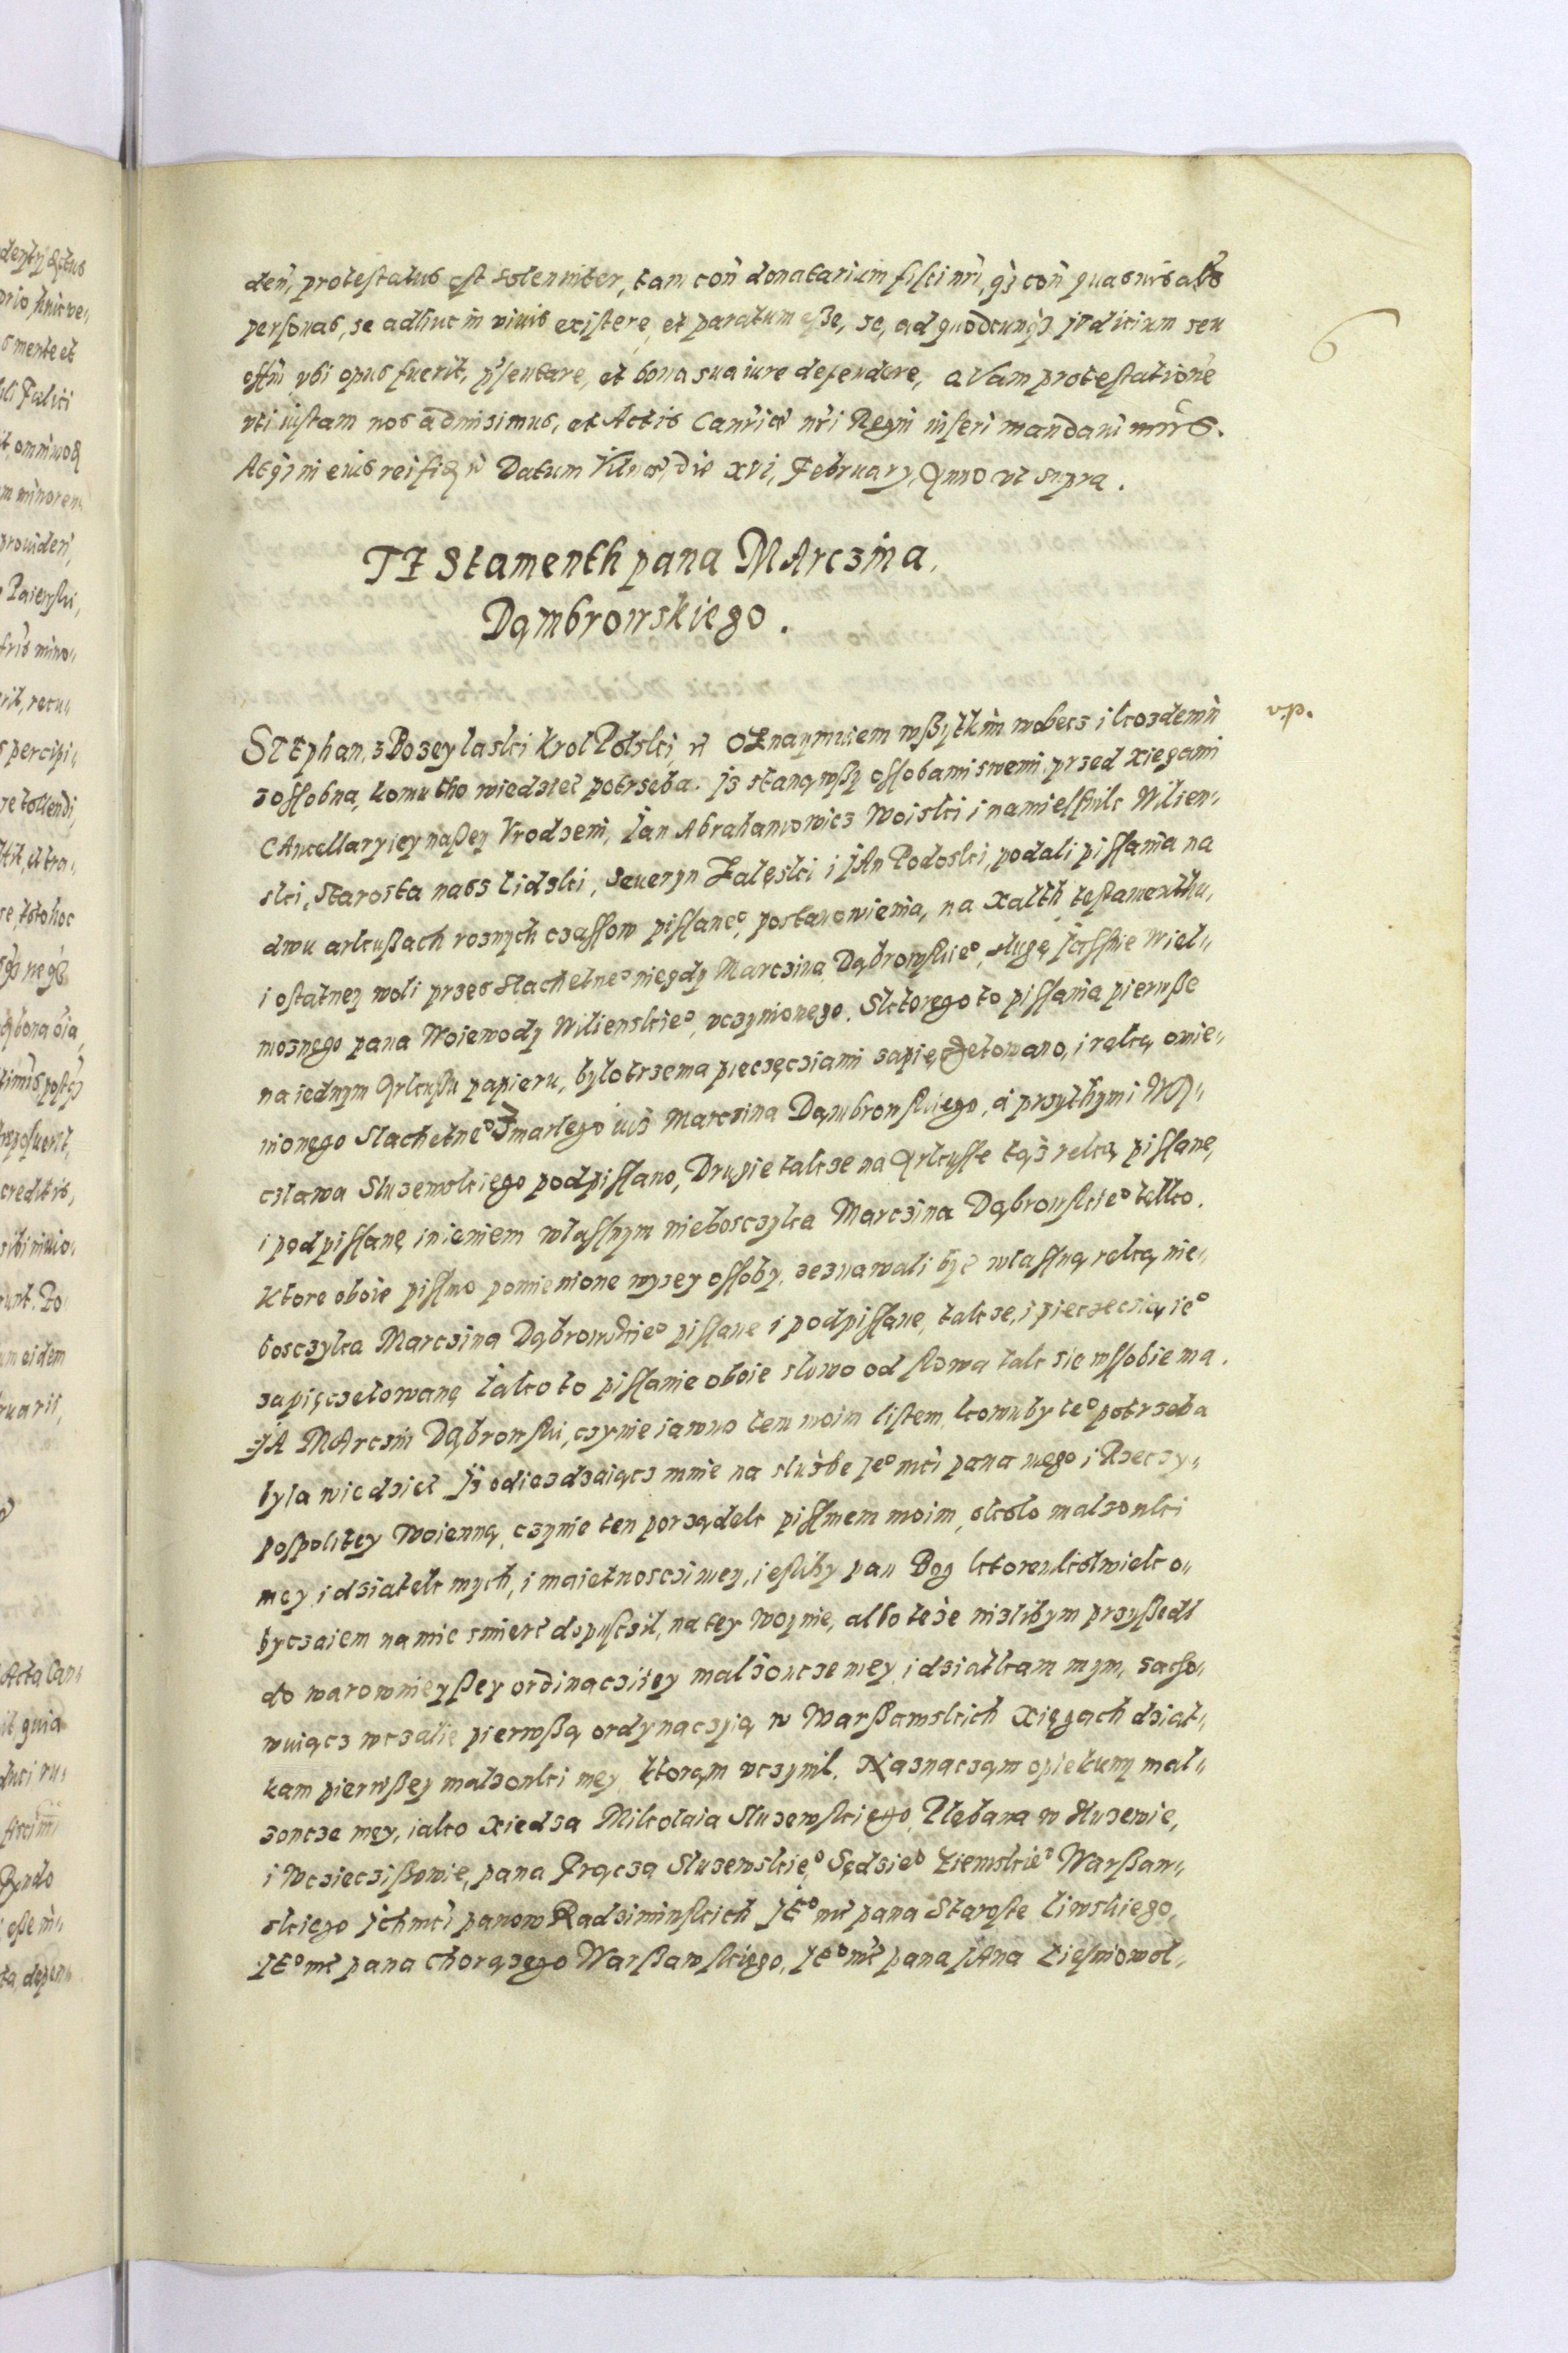 6
den̄, protestatus est solenniter, tam con̄ donatarium fisci nr̄i, q̄3 con̄ quasuis alˢ
personas, se adhuc in viuis existere, et paratum esse, se, ad quodcunq3 iudicium seu
offm̄ vbi opus fuerit, p̄sentare, et bona sua iure defendere, protestatione
vti iustam nos admisimus, et Actis Can̄riæ nr̄i Regni inseri mandauimus.
Atq3 in eius rei fidē Datum Vilnæ, die xvi, February, Anno vt supra.
TEStamenth pana MArczina,
Dąmbrowskiego.
STEphan, z Bozey laski krol Polski, OZnaymuiem wßytkim wobecz i kozdemu
zossobna, komu tho wiedziec potrzeba. Jz stanąwßy ossobami swemi przed xiegami
CAncellaryiey naßey Vrodzeni, Jan Abrahamowicz Woiski i namiestnik Wilien„
ski, Starosta nasz lidski, Seueryn Zalęski i JAn Podoski, podali pissania na
dwu arkußach roznych czassow pissaneº, postanowienia, na xalth testamenthu,
i ostatney woli przes slachetneº niegdy Marczina Dąbrowskieº, slugę Jassnie wiel„
moznego pana Woiewody Wilienskieº, vczynionego. Sktorego to pissania pierwße
na iednym Arkußu papieru, bylo trzema pieczęcziami zapieczętowano, i ręką omie„
nionego slachetneº zmarlego iuż Marczina Dąmbrowskiego, a przythym i Woy„
czlawa Sluzewskiego podpissano, Drugie takze na Arkusse tąż reką pissane,
i podpissanę imieniem wlassnym nieboszczyka Marczina Dąbrowskieº tylko.
Ktore oboie pissmo pomienione wyzey ossoby, zeznawali byc wlassną ręką nie„
bosczyka Marczina Dąbrowskieº pissane i podpissane, takze, i pieczecią ieº
zapięczetowanę Iako to pissanie oboie slowo od slowa tak sie wssobie ma.
JA MArczin Dąbrowski, czynie iawno tem moim listem, komuby teº potrzeba
byla wiedziec Jż odiezdzaiącz mnie na służbe Jeº mci pana mego i Rzeczy„
pospolitey woienną, czynie ten porządek pissmem moim, około malzonki
mey, i dziatek mych, i maietnosczi mey, iesliby pan Bog ktoremkolwiek o„
byczaiem na mie smierc dopuscil, na tey woynie, albo teże nizlibym przyßedl
do warownieyßey ordinacziiey malżonce mey, i dziatkam mym, zacho„
wuiącz wczalie pierwßą ordynaczyią w Warßawskich xięgach dziat„
kam pierwßey malzonki mey, ktorąm vczynil. Naznaczam opiekuny mal„
zoncze mey, iako xiedza Mikołaia Sluzewskiego, Plębana w Sluzewie,
i Wczieczißowie, pana Sluzewskieº, Sędzieº Ziemskieº Warßaw„
skiego Jchmci panow Radziminskich JEº mc pana Staroste liwskiego,
JEº mc pana chorązego Warßawskiego, JEº mc pana JAna